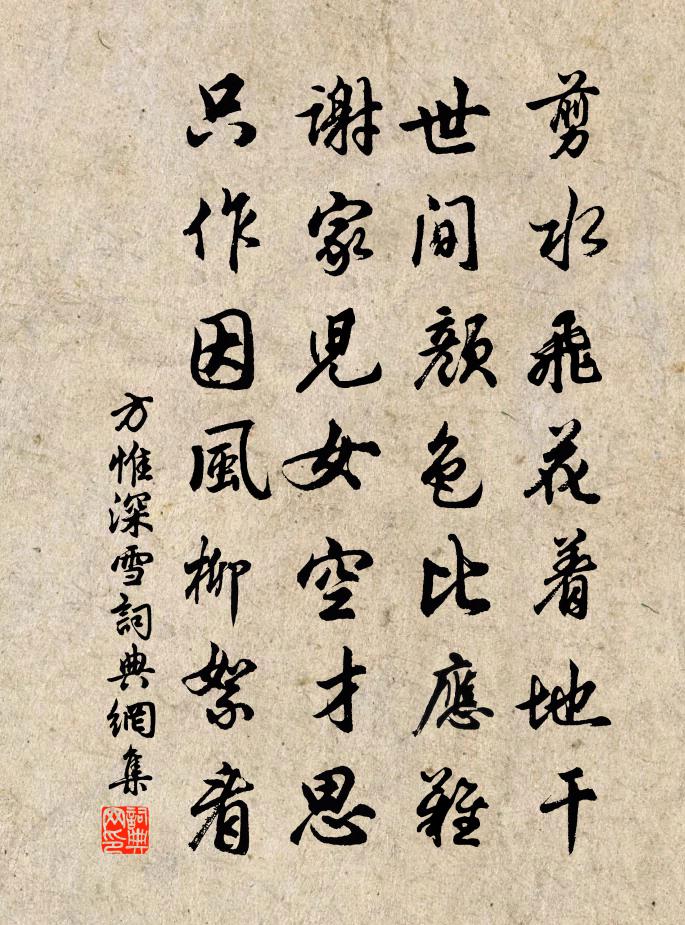 剪水飛花着地干
世間顔色比應難
謝家児女空才思
只作因風柳絮看
方惟深雪詞典網集
詞典网印